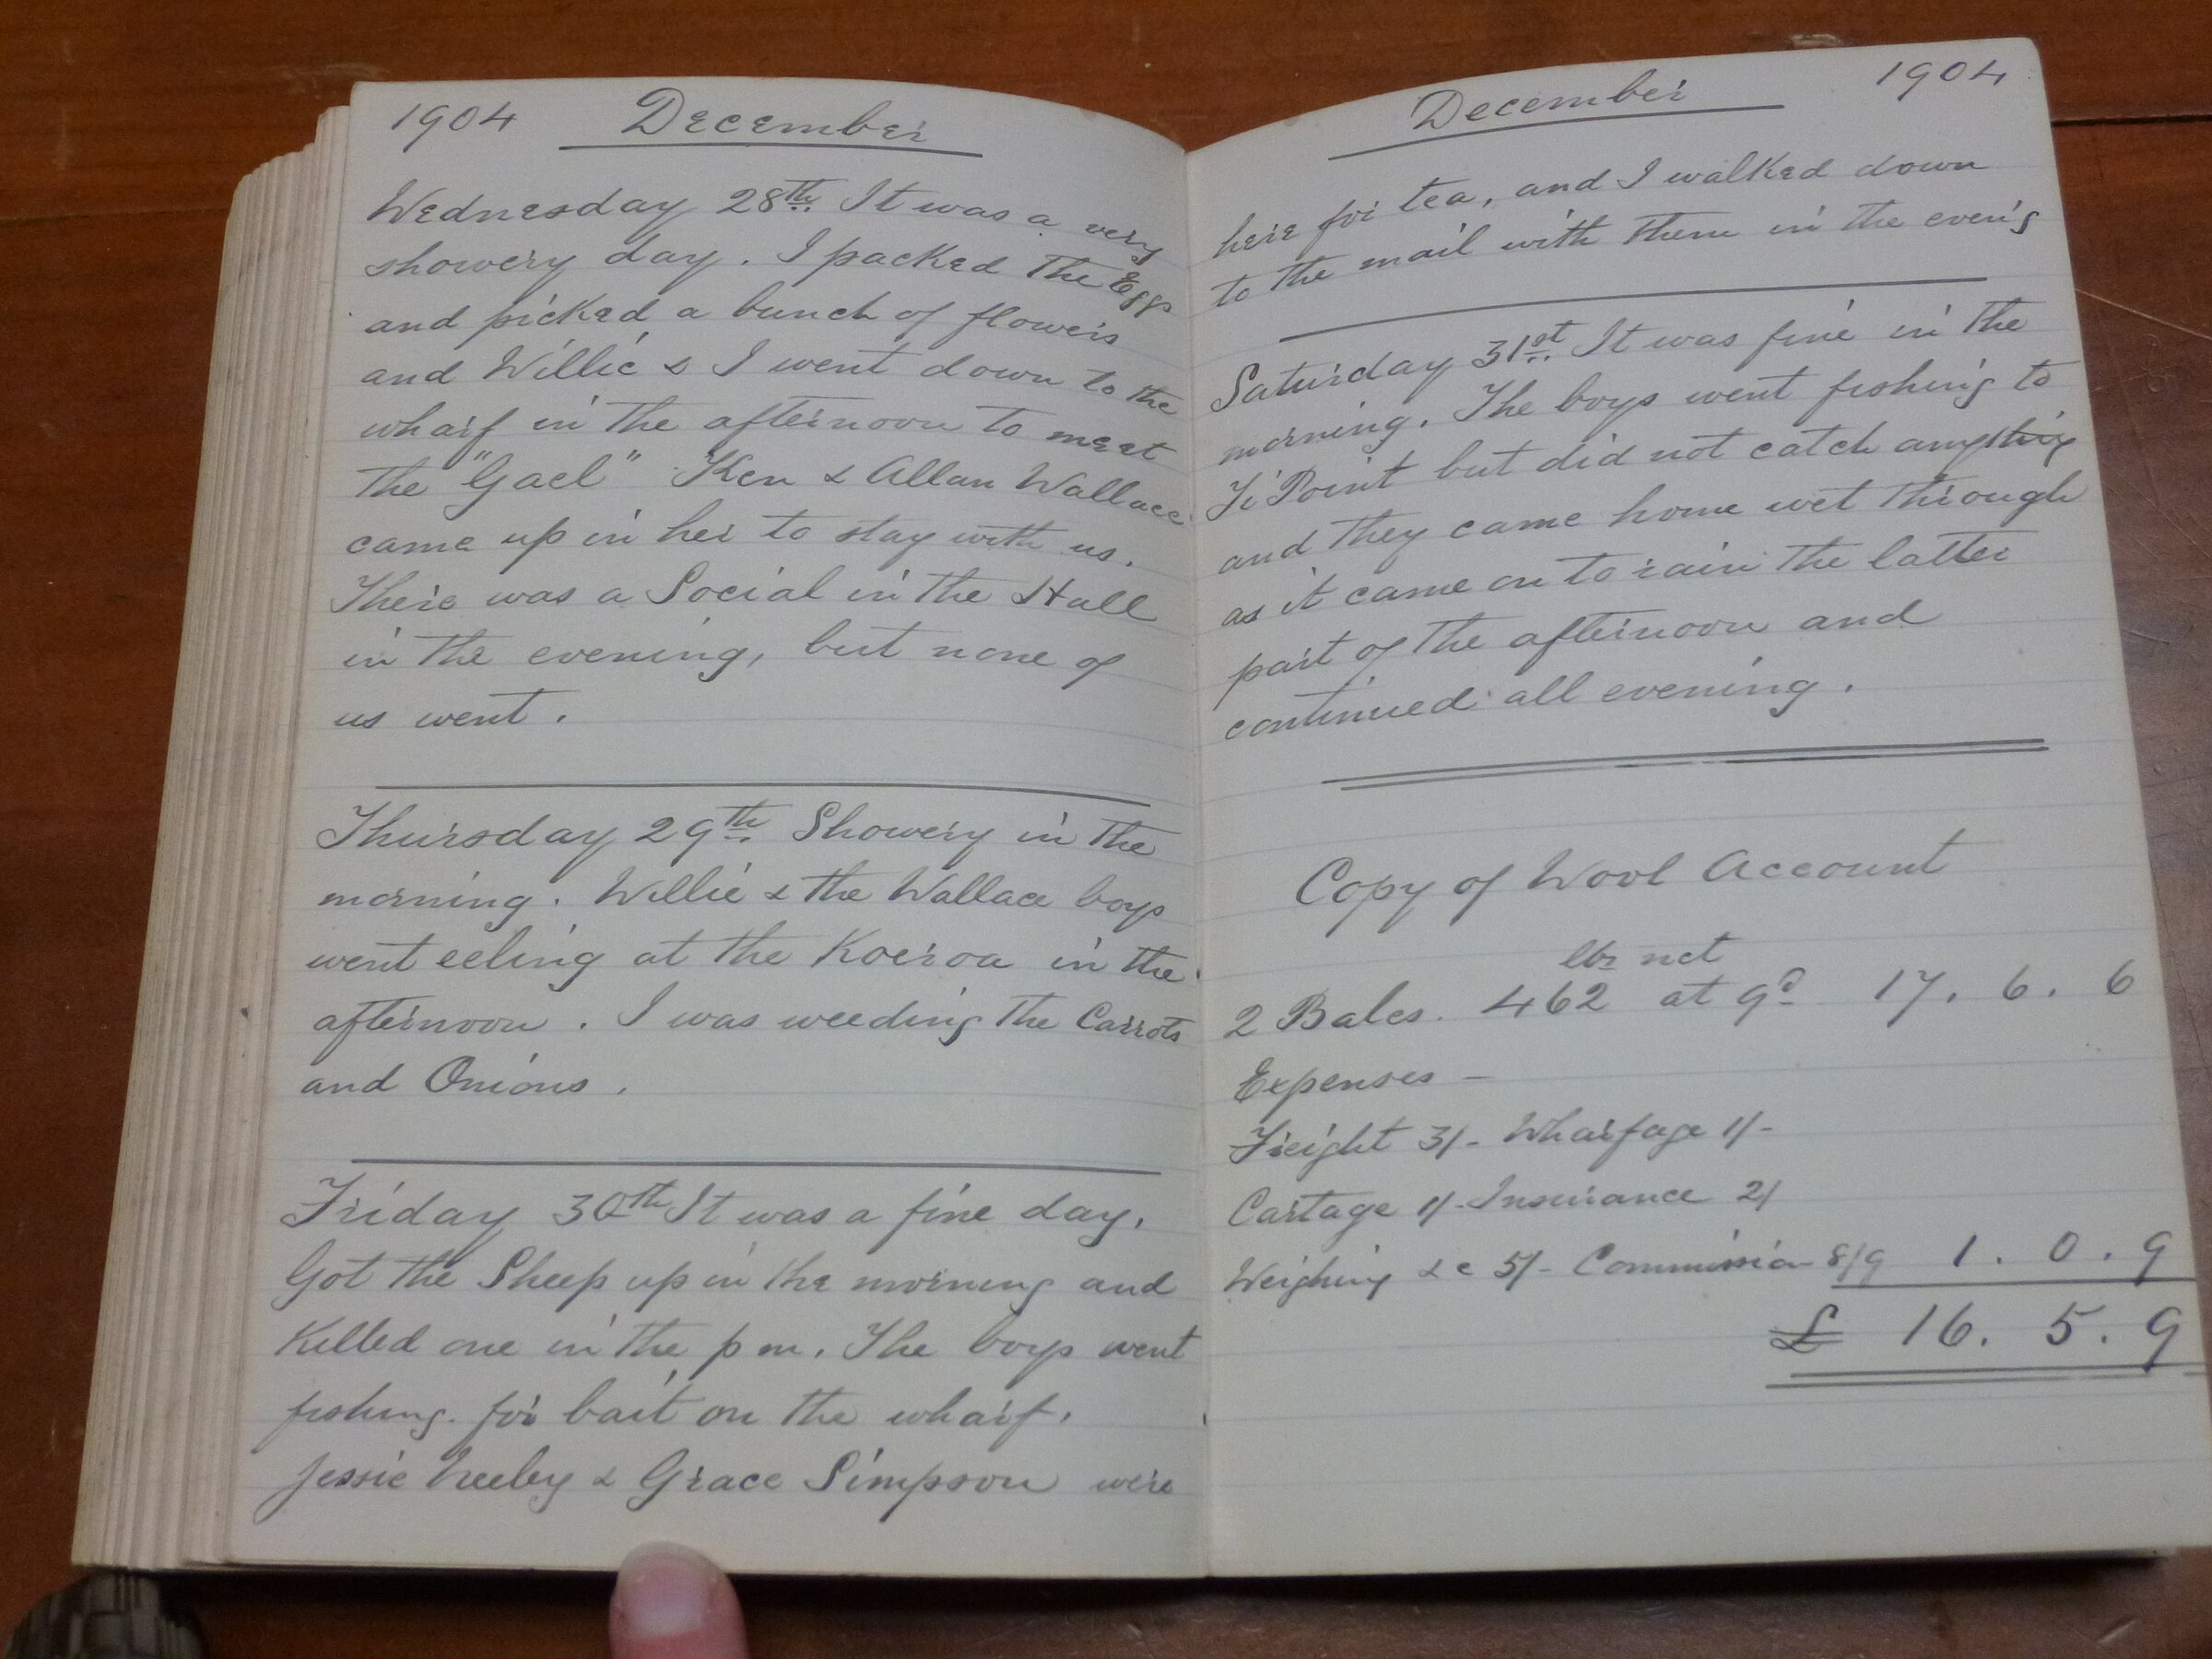 1904 December
Wednesday 28th. It was a very
showery day. I packed the Eggs
and picked a bunch of flowers
and Willie & I went down to the
wharf in the afternoon to meet
the "Gael" Ken & Allan Wallace
came up in her to stay with us.
There was a Social in the Hall
in the evening, but none of
us went.
Thursday 29th. Showery in the
morning. Willie & the Wallace boys
went eeling at the Koeroa in the
afternoon. I was weeding the Carrots
and Onions.
Friday 30th It was a fine day.
Got the Sheep up in the morning and
Killed one in the pm. The boys went
fishing. for bait on the wharf.
Jessie & Grace Simpson were
December 1904
here for tea, and I walked down
to the mail with them in the even'g
Saturday 31st. It was fine in the
morning. The boys went fishing to
Ti Point but did not catch anything
and they came home wet through
as it came on to rain the latter
part of the afternoon and
continued all evening.
Copy of Wool Account
lbs net
2 Bales. 462 at 9d 17. 6. 6
Expenses -
Freight 3/- Wharfage 1/-
Cartage 1/- Insurance 2/
Weighing &c 5/- Commission 8/9 1. 0. 9
£ 16. 5. 9